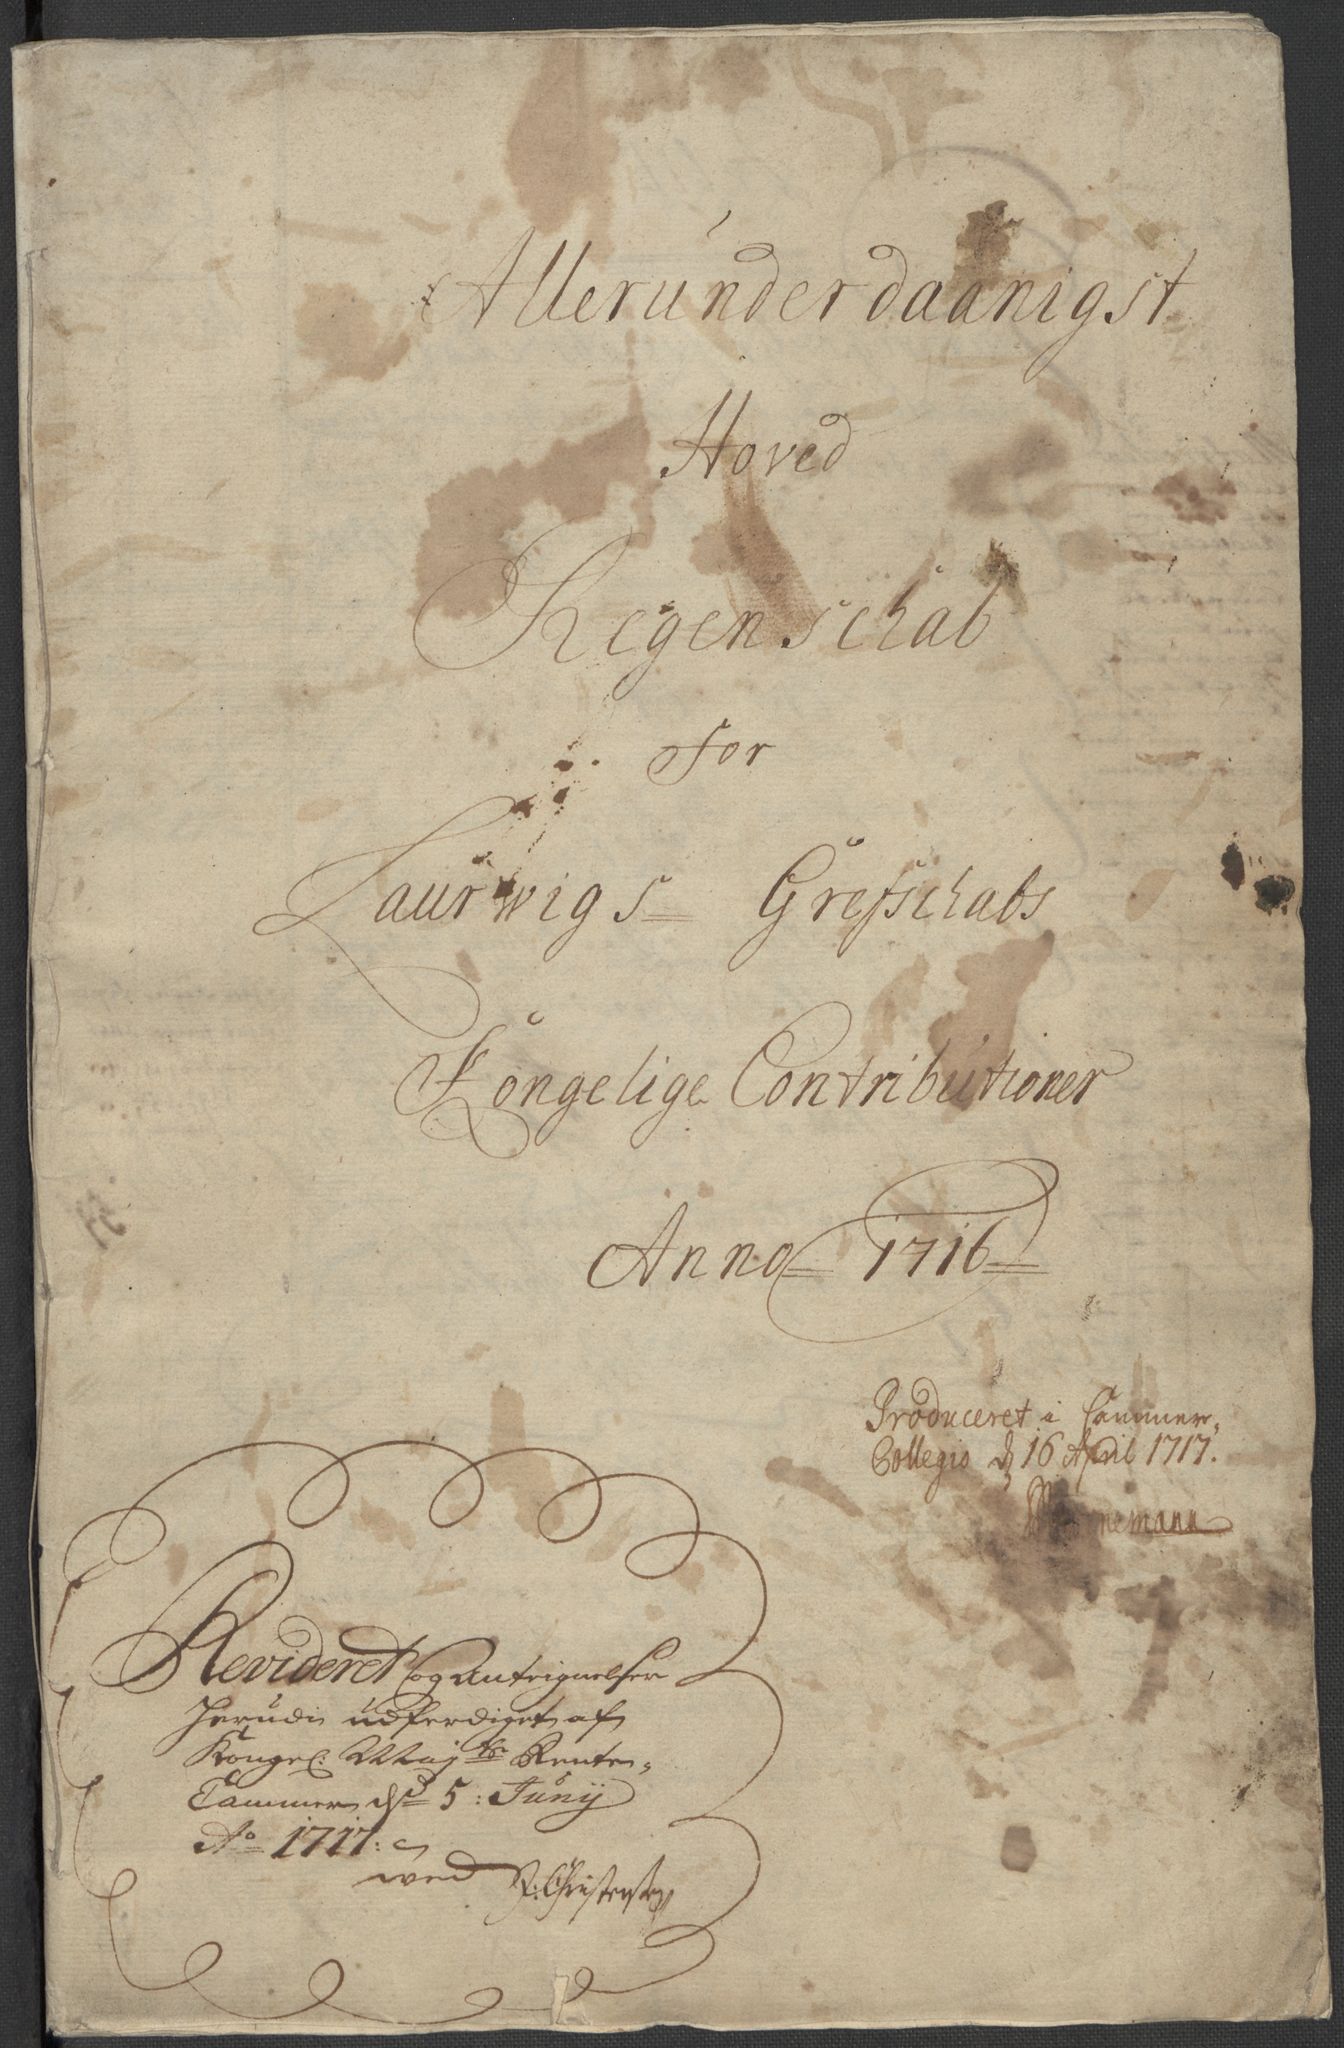 Allerunderdaanigst
Hoved
Regenschab
for
Laurwigs Grefschabs
Kongelige Contributioner
Anno 1716
Produceret i Cammer
Collegio d 16 April 1717.
Revideret og Anteignelser
Herudi udferdiget af
Kongel: May.ts Rente-
Cammer d. 5: Juny
Ao 1717:
wed P: Christensen